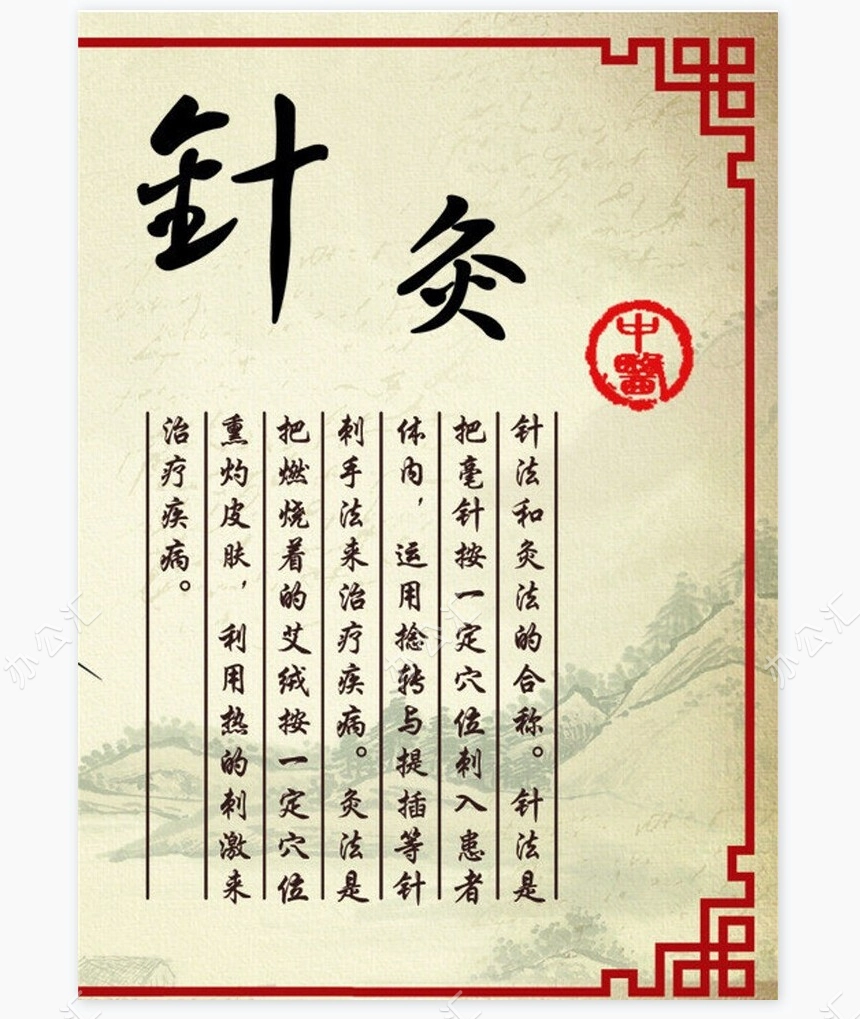 針灸
中醫
针法和灸法的合称。针法是
把毫针按一定穴位刺入患者
体内，运用捻转与提插等针
刺手法来治疗疾病。灸法是
把燃烧着的艾绒按一定穴位
熏灼皮肤，利用热的刺激来
治疗疾病。
办公汇
办公汇
办公汇